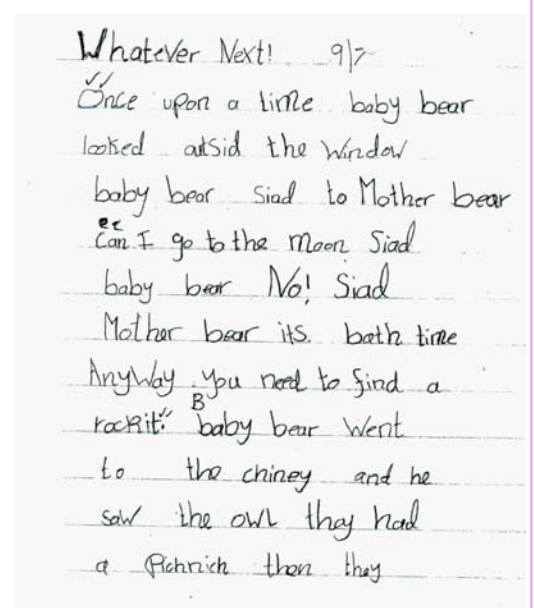 Whatever Next! 9/7
Once upon a time baby bear
looked outsid the window
baby bear siad to Mother bear
Can I go to the moon Siad
baby bear No! Siad
Mother bear its. bath time
AnyWay. you need to find a
rockit. Bbaby bear Went
to the chiney and he
saw the owl they had
a Pichnich then they